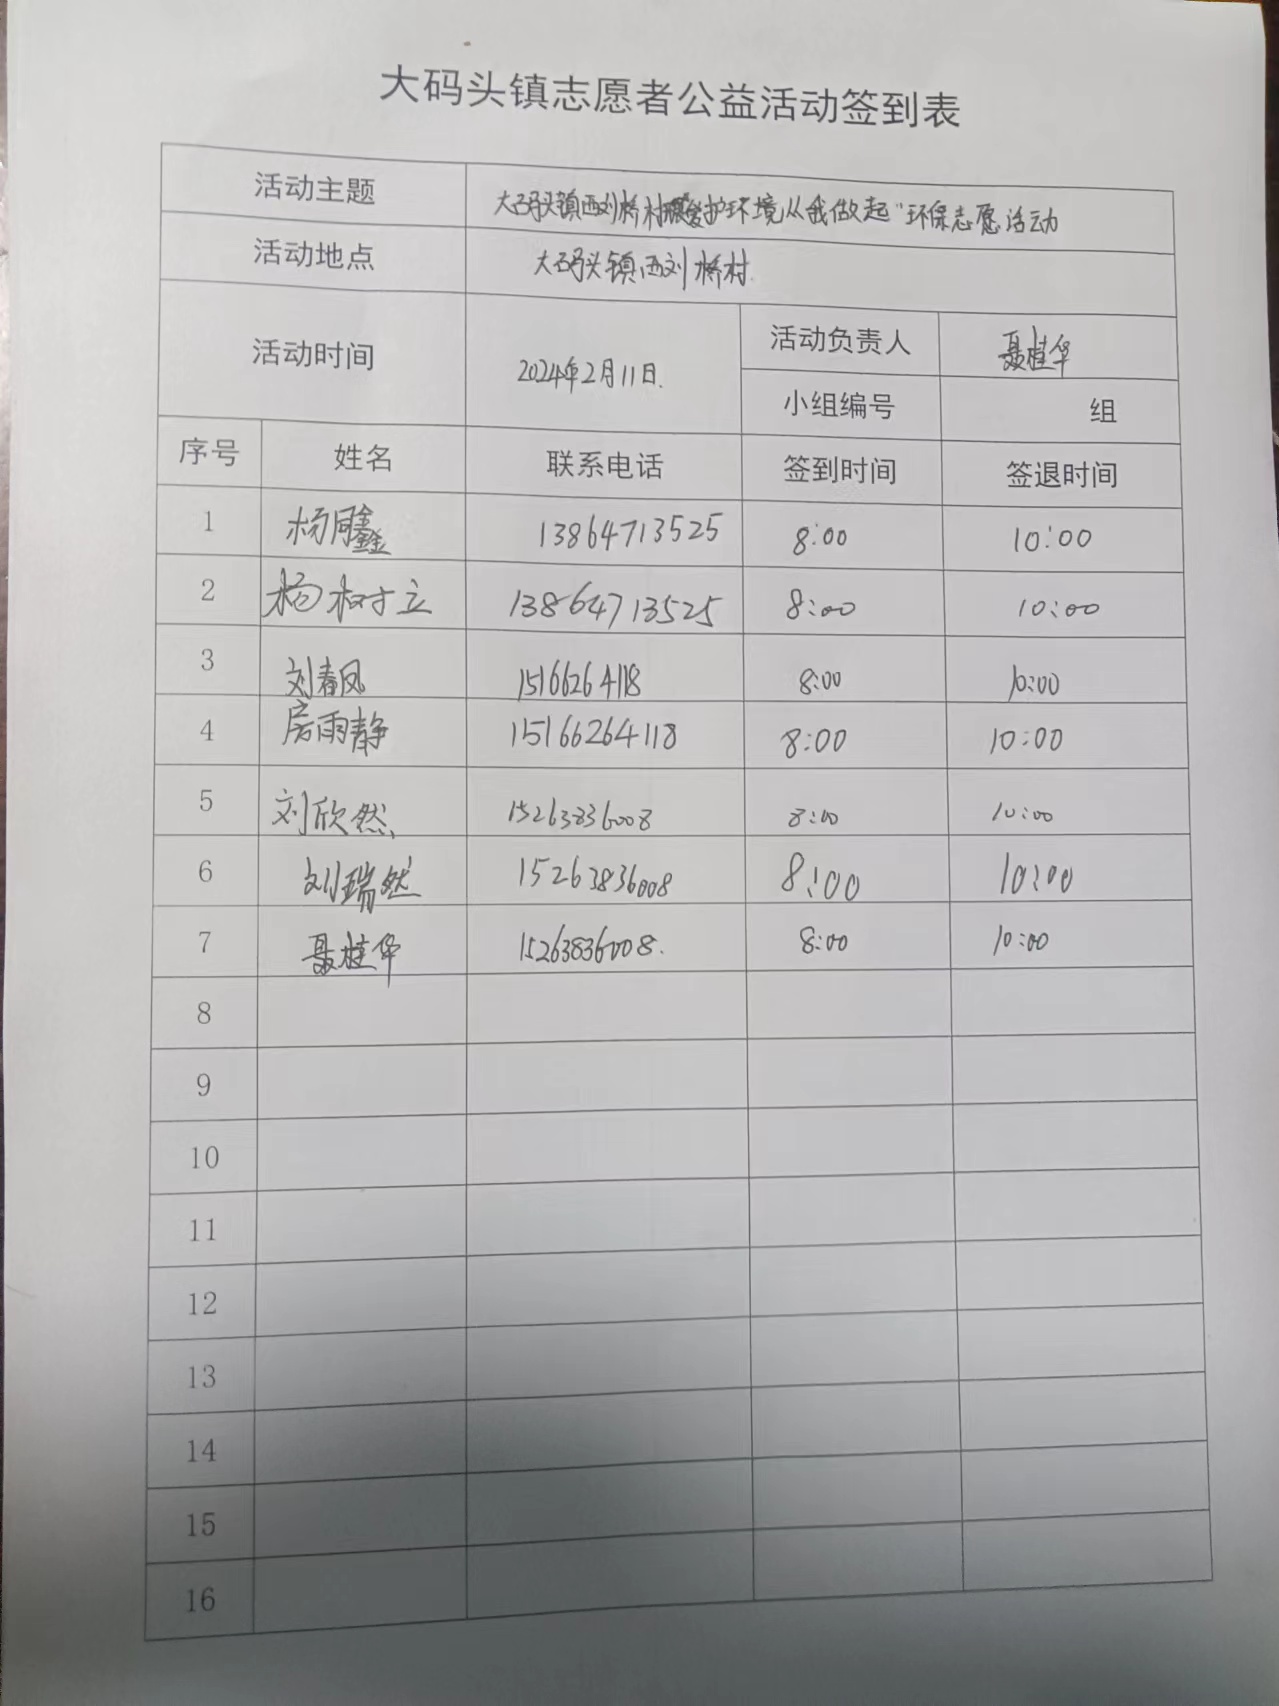 大码头镇志愿者公益活动签到表
活动主题 大码头镇西刘桥村爱护环境从我做起"环保志愿活动
活动地点 大码头镇西刘桥村
活动时间 2024年2月11日. 活动负责人 聂桂华
小组编号 组
序号 姓名 联系电话 签到时间 签退时间
1 杨同鑫 13864713525 8:00 10:00
2 杨树立 13864713525 8:00 10:00
3 刘春凤 15166264118 8:00 10:00
4 房雨静 15166264118 8:00 10:00
5 刘欣然 15263836008 8:00 10:00
6 刘瑞然 15263836008 8:00 10:00
7 聂桂华 15263836008. 8:00 10:00
8
9
10
11
12
13
14
15
16